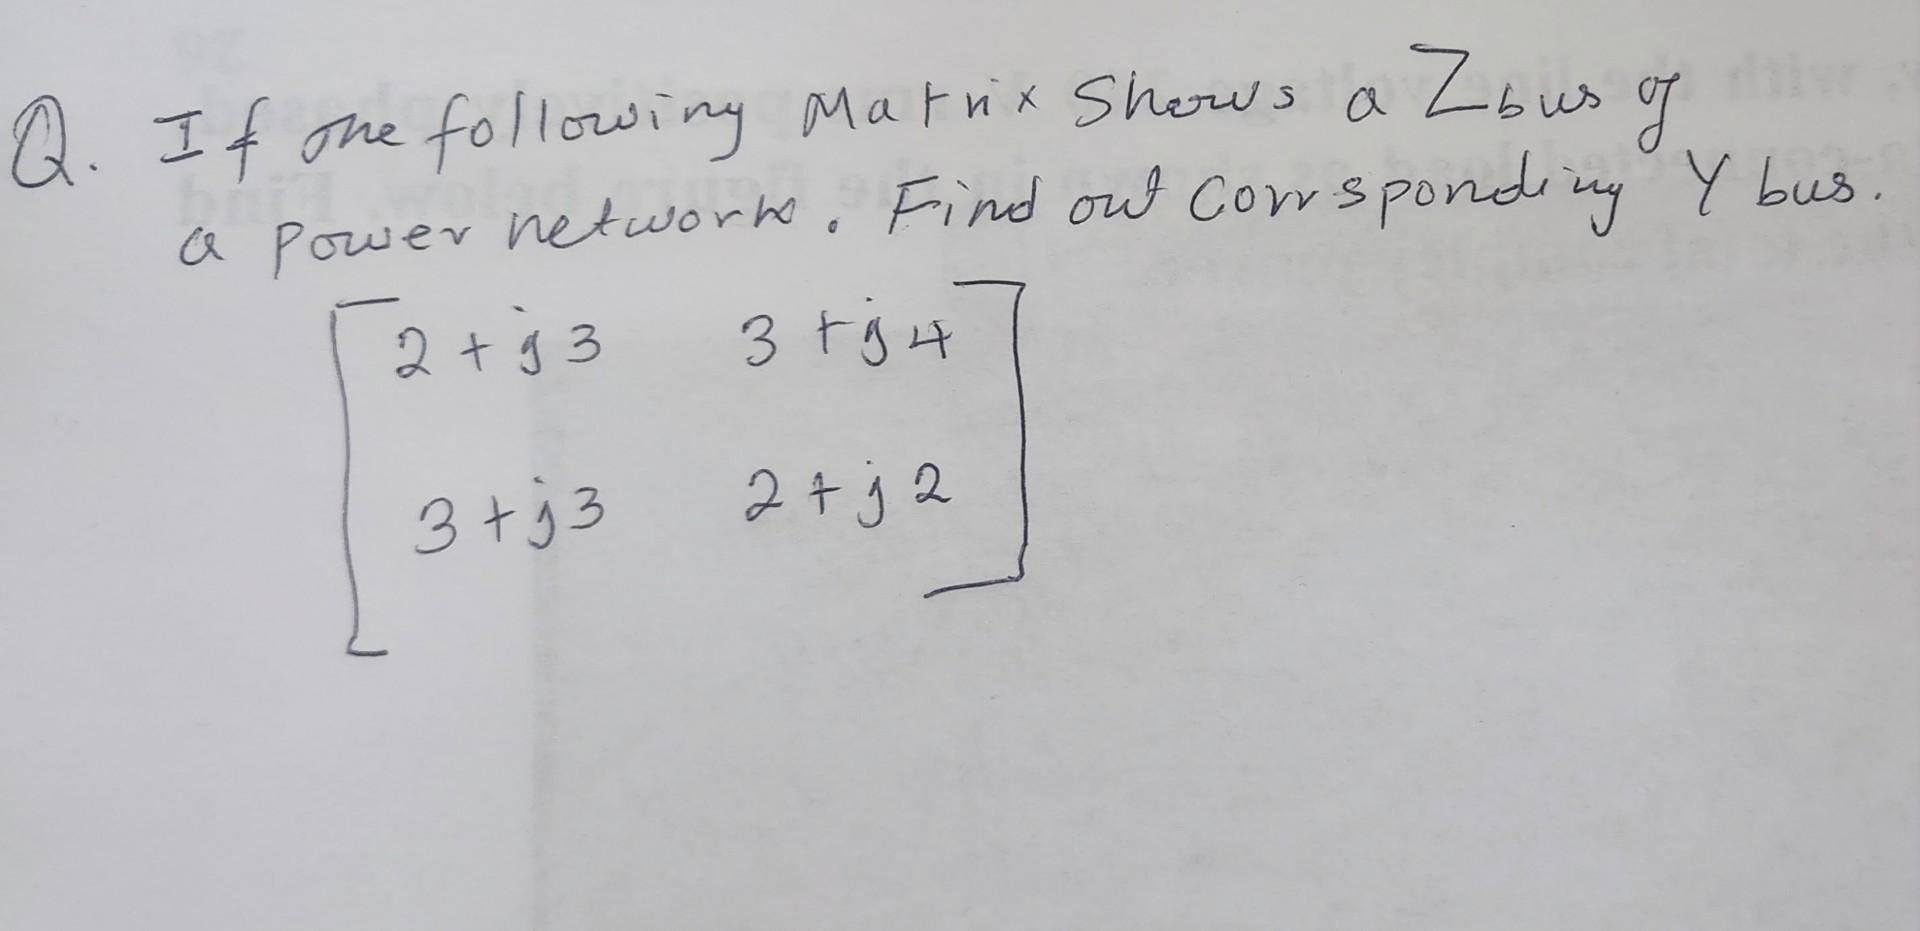 Q. If the following Matrix Shows a Zbus of
a power network. Find out Corrsponding Y bus.
2 + j3 3 + j4
3 + j3 2 + j2